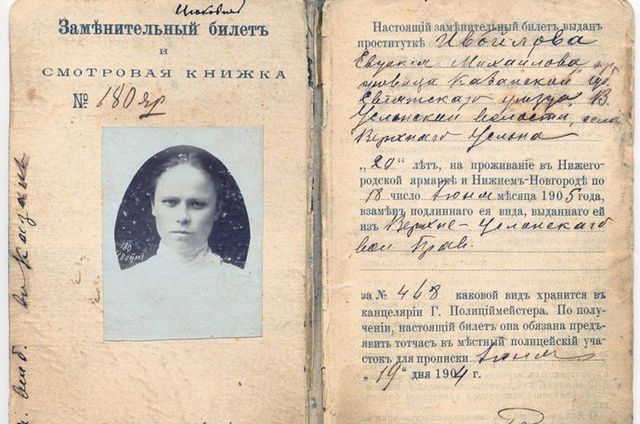 Замѣнительный билетъ
и
СМОТРОВАЯ КНИЖКА
№ 180 яр
Настоящій замѣнительный билетъ выданъ
проституткѣ Ивойлова
Евдокія Михайлова
Казанской губ.
уѣзда, В.
Услонской волости, села
Верхняго Услона
„20" лѣтъ, на проживаніе въ Нижего-
родской ярмаркѣ и Нижнем-Новгородѣ по
18 число іюня мѣсяца 1905 года,
взамѣнъ подлиннаго ея вида, выданнаго ей
изъ Верхне-Услонскаго
вол. Прав.
за № 468 каковой видъ хранится въ
канцеляріи Г. Полиціймейстера. По полу-
ченіи, настоящій билетъ она обязана предъ-
явить тотчасъ въ мѣстный полицейскій уча-
стокъ для прописки іюня
„19" дня 1904 г.
въ Казани